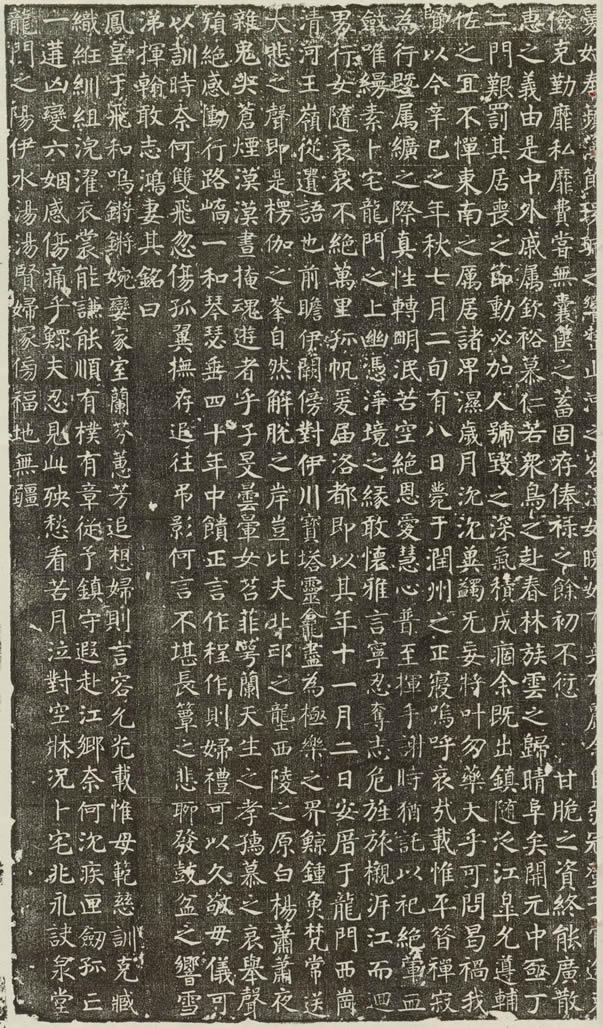 儉克勤靡私靡費嘗無囊篋之蓄固存俸祿之餘初不愆甘脆之資終能廣散
惠之義由是中外戚屬欽裕慕仁若衆鳥之赴春林族雲之歸晴阜矣開元中亟丁
二門艱罰其居喪之節動必加人號毀之深氣積成痼余既出鎮隨泛江皐允遵輔
佐之冝不憚東南之厲居諸早濕歲月沉沉冀蠲无妄將叶勿藥大乎可問曷禍我
賢以今辛巳之年秋七月二旬有八日薨于潤州之正寢嗚呼哀哉載惟平昔禪寂
為行暨属纊之際真性轉明泯苦空絕恩愛慧心普至揮手謝時猶託以祀絕葷血
斂唯縵素卜宅龍門之上幽憑淨境之緣敢懷雅言寧忍奪志危旌旅櫬泝江而迴
男行女隨哀哀不絕萬里孤帆爰届洛都即以其年十一月二日安厝于龍門西崗
清河王嶺從遺語也前瞻伊闕傍對伊川寶塔靈龕盡為極樂之界鯨鍾魚梵常送
大悲之聲即是楞伽之峯自然解脫之岸豈比夫北邙之壟西陵之原白楊蕭蕭夜
雜鬼哭蒼煙漠漠晝掩魂遊者乎子旻曇暈女苕菲萼蘭天生之孝孺慕之哀舉聲
殞絕感慟行路嶠一和琴瑟垂四十年中饋正言作程作則婦禮可以久敬母儀可
以訓時奈何雙飛忽傷孤翼撫存追往弔影何言不堪長簟之悲聊發鼓盆之響雪
涕揮翰敢志鴻妻其銘曰
鳳皇于飛和鳴鏘鏘婉孌家室蘭芬蕙芳追想婦則言容允光載惟母範慈訓克臧
織絍紃組浣濯衣裳能謙能順有樸有章從予鎮守遐赴江鄉奈何沉疾匣劒孤亡
一蓮凶變六姻感傷痛乎鰥夫忍見此殃愁看苦月泣對空牀況卜宅兆永訣泉堂
龍門之陽伊水湯湯賢婦冢傍福地無疆